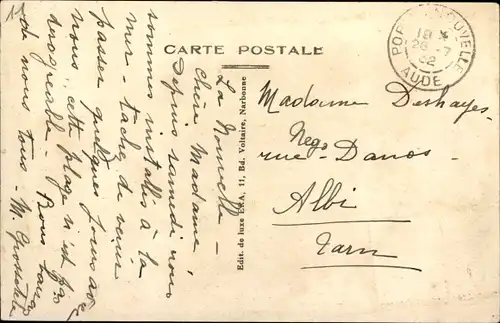 11
CARTE POSTALE
PORT-LA-NOUVELLE
18 *
26 - 7
32
AUDE
La Nouvelle -
Chère Madame
Depuis samedi nous
sommes installés à la
mer - tâchez de venir
passer quelques jours avec
nous, cette plage n'est pas
désagréable - Bons baisers
de nous tous - M.
Edit. de luxe ERA, 11, Bd. Voltaire, Narbonne
Madame Deshayes -
Nego
rue - Danos -
Albi
Tarn